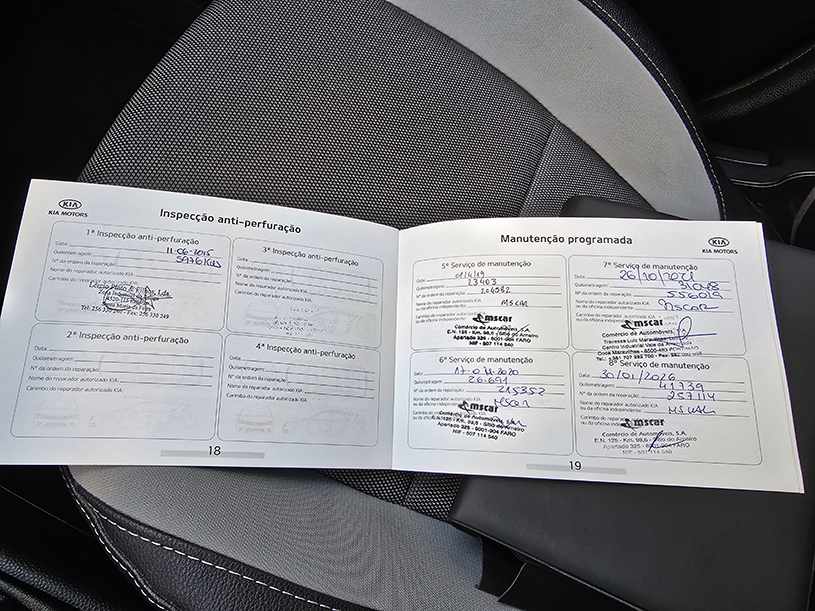 KIA
KIA MOTORS
Inspecção anti-perfuração
1ª Inspecção anti-perfuração
Data 11-06-2015
Quilometragem: 5976 Kms
Nº da ordem da reparação:
Nome do reparador autorizado KIA
Carimbo do reparador autorizado KIA:
Tel: 256 330 240 Fax: 256 330 249
3ª Inspecção anti-perfuração
Data
Quilometragem:
Nº da ordem da reparação:
Nome do reparador autorizado KIA
Carimbo do reparador autorizado KIA:
2ª Inspecção anti-perfuração
Data
Quilometragem:
Nº da ordem da reparação:
Nome do reparador autorizado KIA
Carimbo do reparador autorizado KIA:
4ª Inspecção anti-perfuração
Data
Quilometragem:
Nº da ordem da reparação:
Nome do reparador autorizado KIA
Carimbo do reparador autorizado KIA:
18
Manutenção programada
KIA
KIA MOTORS
5º Serviço de manutenção
Data
Quilometragem: 23403
Nº da ordem da reparação:
Nome do reparador autorizado KIA
ou da oficina independente: MSCAR
Carimbo do reparador
mscar
Comércio de Automóveis, S.A.
E.N. 125 - Km. 98,6 - Sítio do Arneiro
Apartado 325 - 8001-904 FARO
NIF - 507 114 540
7º Serviço de manutenção
Data 26/10/2021
Quilometragem:
Nº da ordem da reparação: 556019
Nome do reparador autorizado KIA
ou da oficina independente: MSCAR
mscar
Comércio de Automóveis,
Travessa Luís
Centro Industrial Vale da Arrancada
Coca Maravilhas - 8500-483 PORTIMÃO
6º Serviço de manutenção
Data
Quilometragem: 26.691
Nº da ordem da reparação: 215352
Nome do reparador autorizado KIA
ou da oficina independente: MSCAR
mscar
Comércio de Automóveis, S.A.
E.N.125 - Km. 98,6 - Sítio do Arneiro
Apartado 325 - 8001-904 FARO
NIF - 507 114 540
8º Serviço de manutenção
Data 30/01/2026
Quilometragem: 41739
Nº da ordem da reparação: 257114
Nome do reparador autorizado KIA
ou da oficina independente: MSCAR
mscar
Comércio de Automóveis, S.A.
E.N. 125 - Km. 98,6 - Sítio do Arneiro
Apartado 325 - 8001-904 FARO
NIF - 507 114 540
19